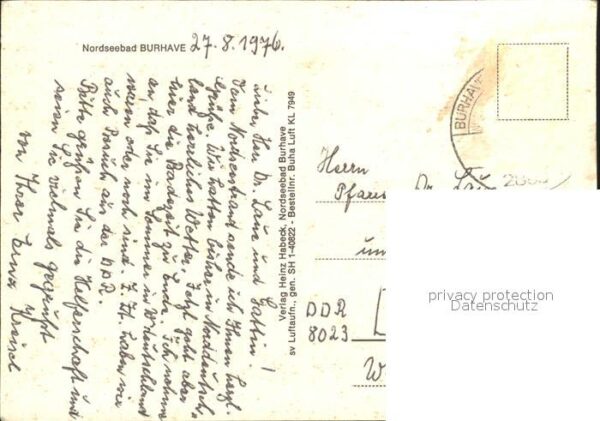 Nordseebad BURHAVE 27.8.1976.
Lieber Herr Dr. Lanz und Gattin!
Vom Nordseestrand sende ich Ihnen herzl.
Grüße. Wir hatten bisher in Norddeutsch-
land herrliches Wetter. Jetzt geht aber
hier die Badezeit zu Ende. Ich nehme
an, daß Sie im Sommer in W.deutschland
waren oder noch sind. Z. Zt. haben wir
auch Besuch aus der DDR.
Bitte grüßen Sie die Helferschaft und
seien Sie vielmals gegrüßt
von Ihrer Erna
Verlag Heinz Habeck, Nordseebad Burhave
sv Luftaufn., gen. SH 1-40822 - Bestellnr. Buha Luft KL 7949
BURHAVE
Herrn
Dr.
DDR
8023
W
privacy protection
Datenschutz